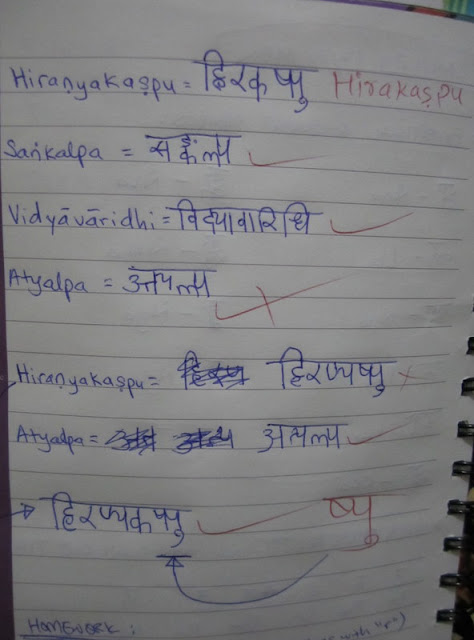 Hiraṇyakaṣpu = हिरकष्पु Hirakaṣpu
Saṅkalpa = सङ्कल्प
Vidyāvāridhi = विद्यावारिधि
Atyalpa =
Hiraṇyakaṣpu = हिरण्यष्पु
Atyalpa = अत्यल्प
हिरण्यकष्पु ष्पु
HOMEWORK:
with "r")